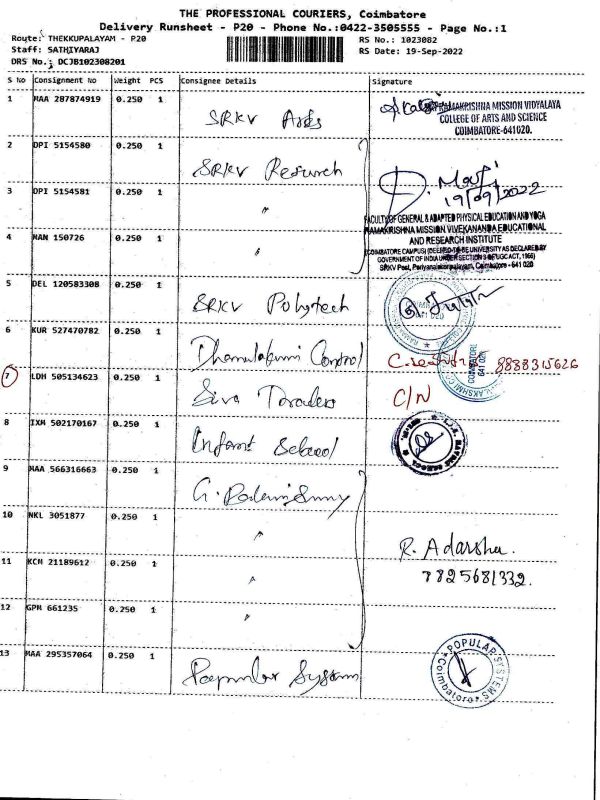 THE PROFESSIONAL COURIERS, Coimbatore
Delivery Runsheet - P20 - Phone No.:0422-3505555 - Page No.:1
Route: THEKKUPALAYAM - P20
RS No.: 1023082
Staff: SATHIYARAJ
RS Date: 19-Sep-2022
DRS No.: DCJB102308201
S No Consignment No Weight PCS Consignee Details Signature
1 MAA 287874919 0.250 1 SRKV Arts
RAMAKRISHNA MISSION VIDYALAYA
COLLEGE OF ARTS AND SCIENCE
COIMBATORE-641020.
2 DPI 5154580 0.250 1 SRKV Research
19/09/2022
3 DPI 5154581 0.250 1 "
FACULTY OF GENERAL & ADAPTED PHYSICAL EDUCATION AND YOGA
RAMAKRISHNA MISSION VIVEKANANDA EDUCATIONAL
AND RESEARCH INSTITUTE
(COIMBATORE CAMPUS) (DEEMED-TO-BE UNIVERSITY AS DECLARED BY
GOVERNMENT OF INDIA UNDER SECTION 3 OF UGC ACT, 1956)
SRKV Post, Periyanaickenpalayam, Coimbatore - 641 020
4 NAN 150726 0.250 1 "
5 DEL 120583308 0.250 1 SRKV Polytech
6 KUR 527470782 0.250 1 Control
8888315626
COIMBATORE
641 021
7 LDH 505134623 0.250 1 Siva Traders C/N
8 IXM 502170167 0.250 1 Infant School
9 MAA 566316663 0.250 1 G.
10 NKL 3051877 0.250 1 "
R. Adarsha.
11 KCM 21189612 0.250 1 "
7825681332.
12 GPM 661235 0.250 1 "
13 MAA 295357064 0.250 1 Popular System
POPULAR SYSTEMS
Coimbatore